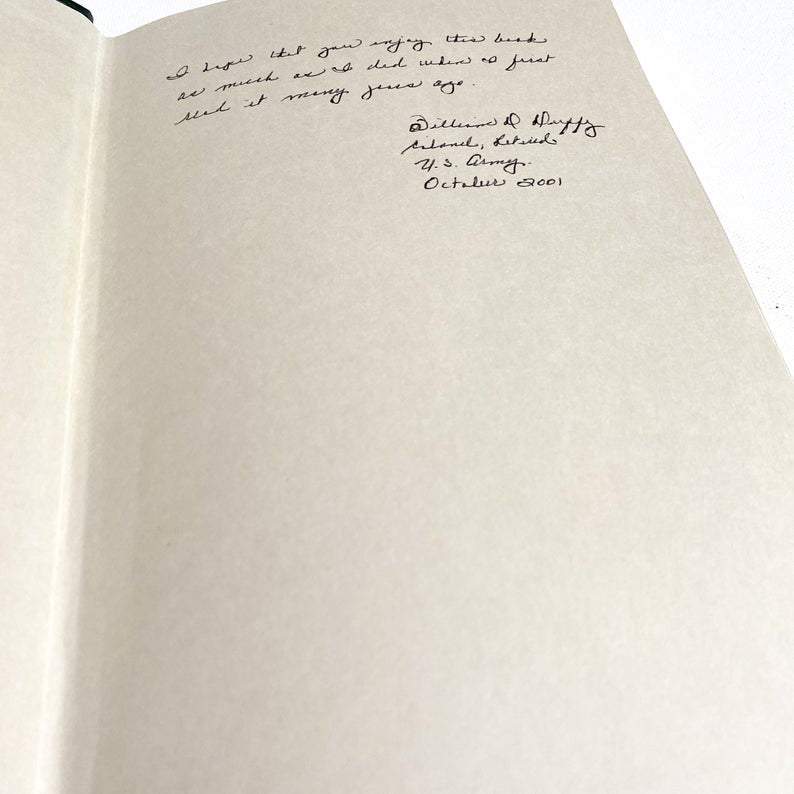 I hope that you enjoy this book
as much as I did when I first
read it many years ago.
William D Duffy
Colonel, Retired
U.S. Army.
October 2001